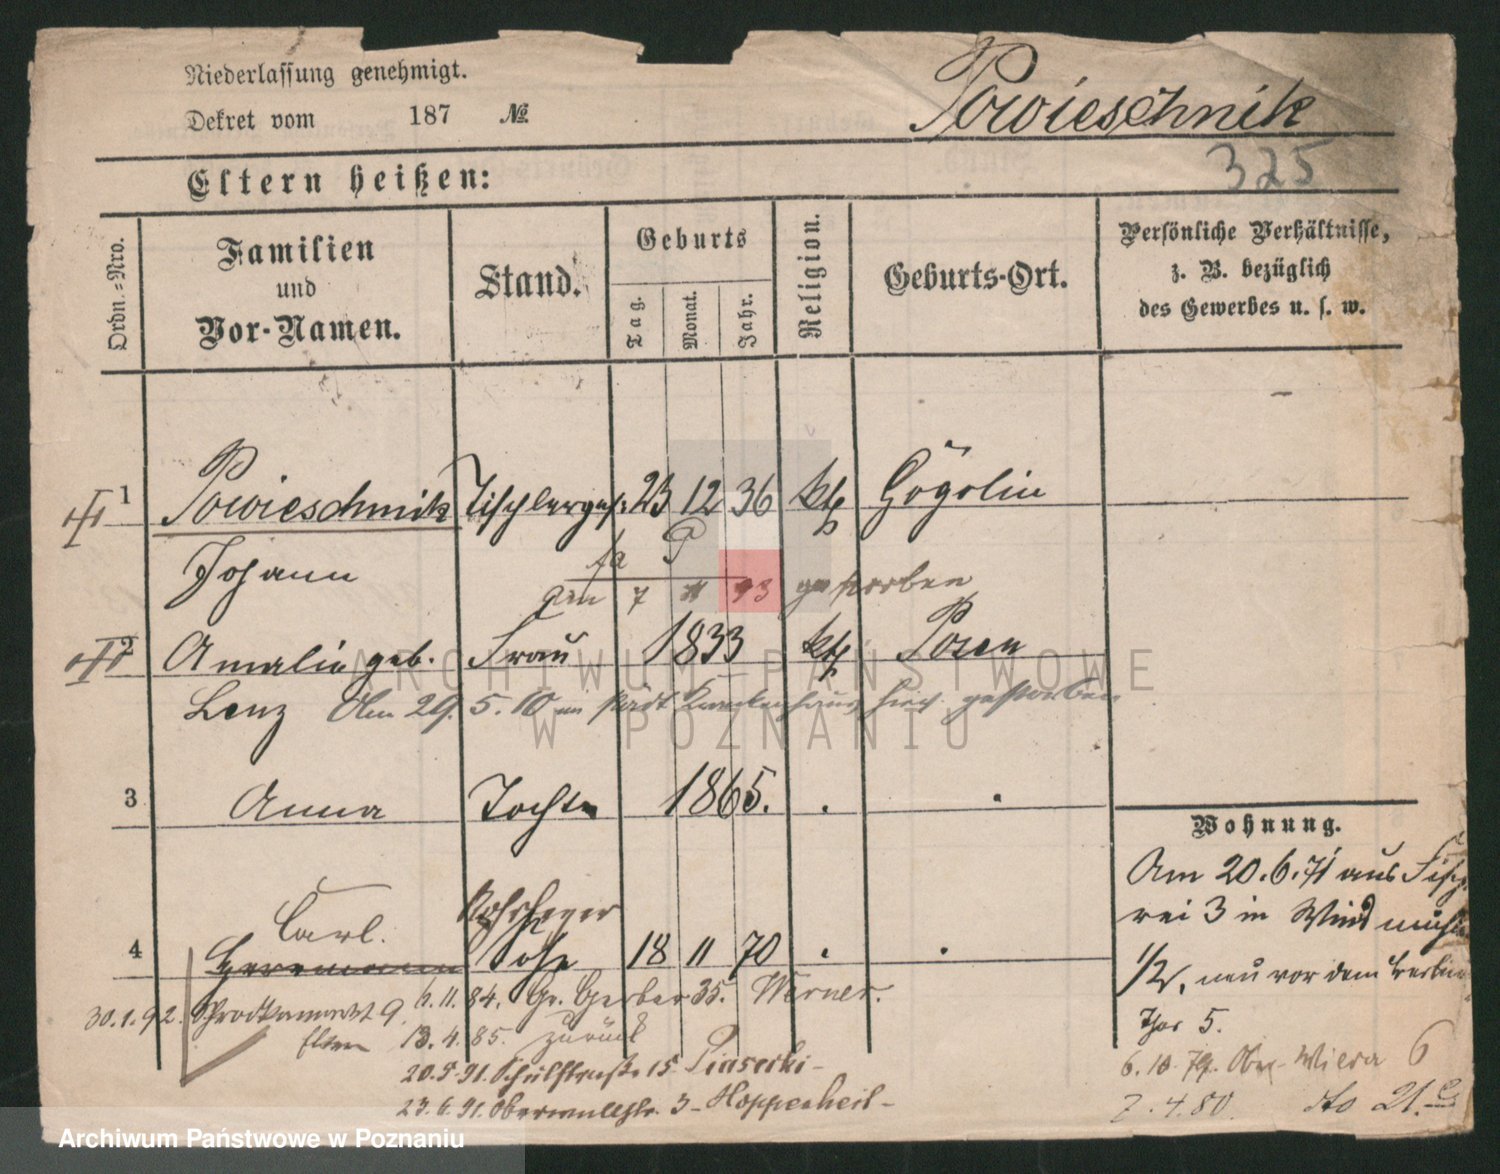 Niederlassung genehmigt.
Dekret vom 187 №
Powieschnik
325
Eltern heißen:
Ordn.-Nro.
Familien
und
Vor-Namen.
Stand.
Geburts
Tag.
Monat.
Jahr.
Religion.
Geburts-Ort.
Persönliche Verhältnisse,
z. B. bezüglich
des Gewerbes u. s. w.
1 Powieschnik Tischlerges. 23 12 36 kth Gögolin
Johann
am 7 93 gestorben
2 Amalie geb. Frau 1833 kth Posen
Lenz Am 29. 5. 10 im städt Krankenhaus hier gestorben
3 Anna Tochter 1865. . .
Carl.
4 Hermann Sohn 18 11 70 . .
30.1.92. 9. 6.11.84. Gr. Gerber 35. Werner.
13.4.85. zurück
20.5.91. Schulstraße 15 Piasecki-
23.6.91. Oberwallstr. 3- Hoppenheit-
Wohnung.
Am 20.6.71 aus Fisch
rei 3 in Windmühl
1/2, neu vor dem Berlin
Thor 5.
6.10.79. Ober Wilda 6
2.4.80. dto 21.
ARCHIWUM PAŃSTWOWE
W POZNANIU
Archiwum Państwowe w Poznaniu